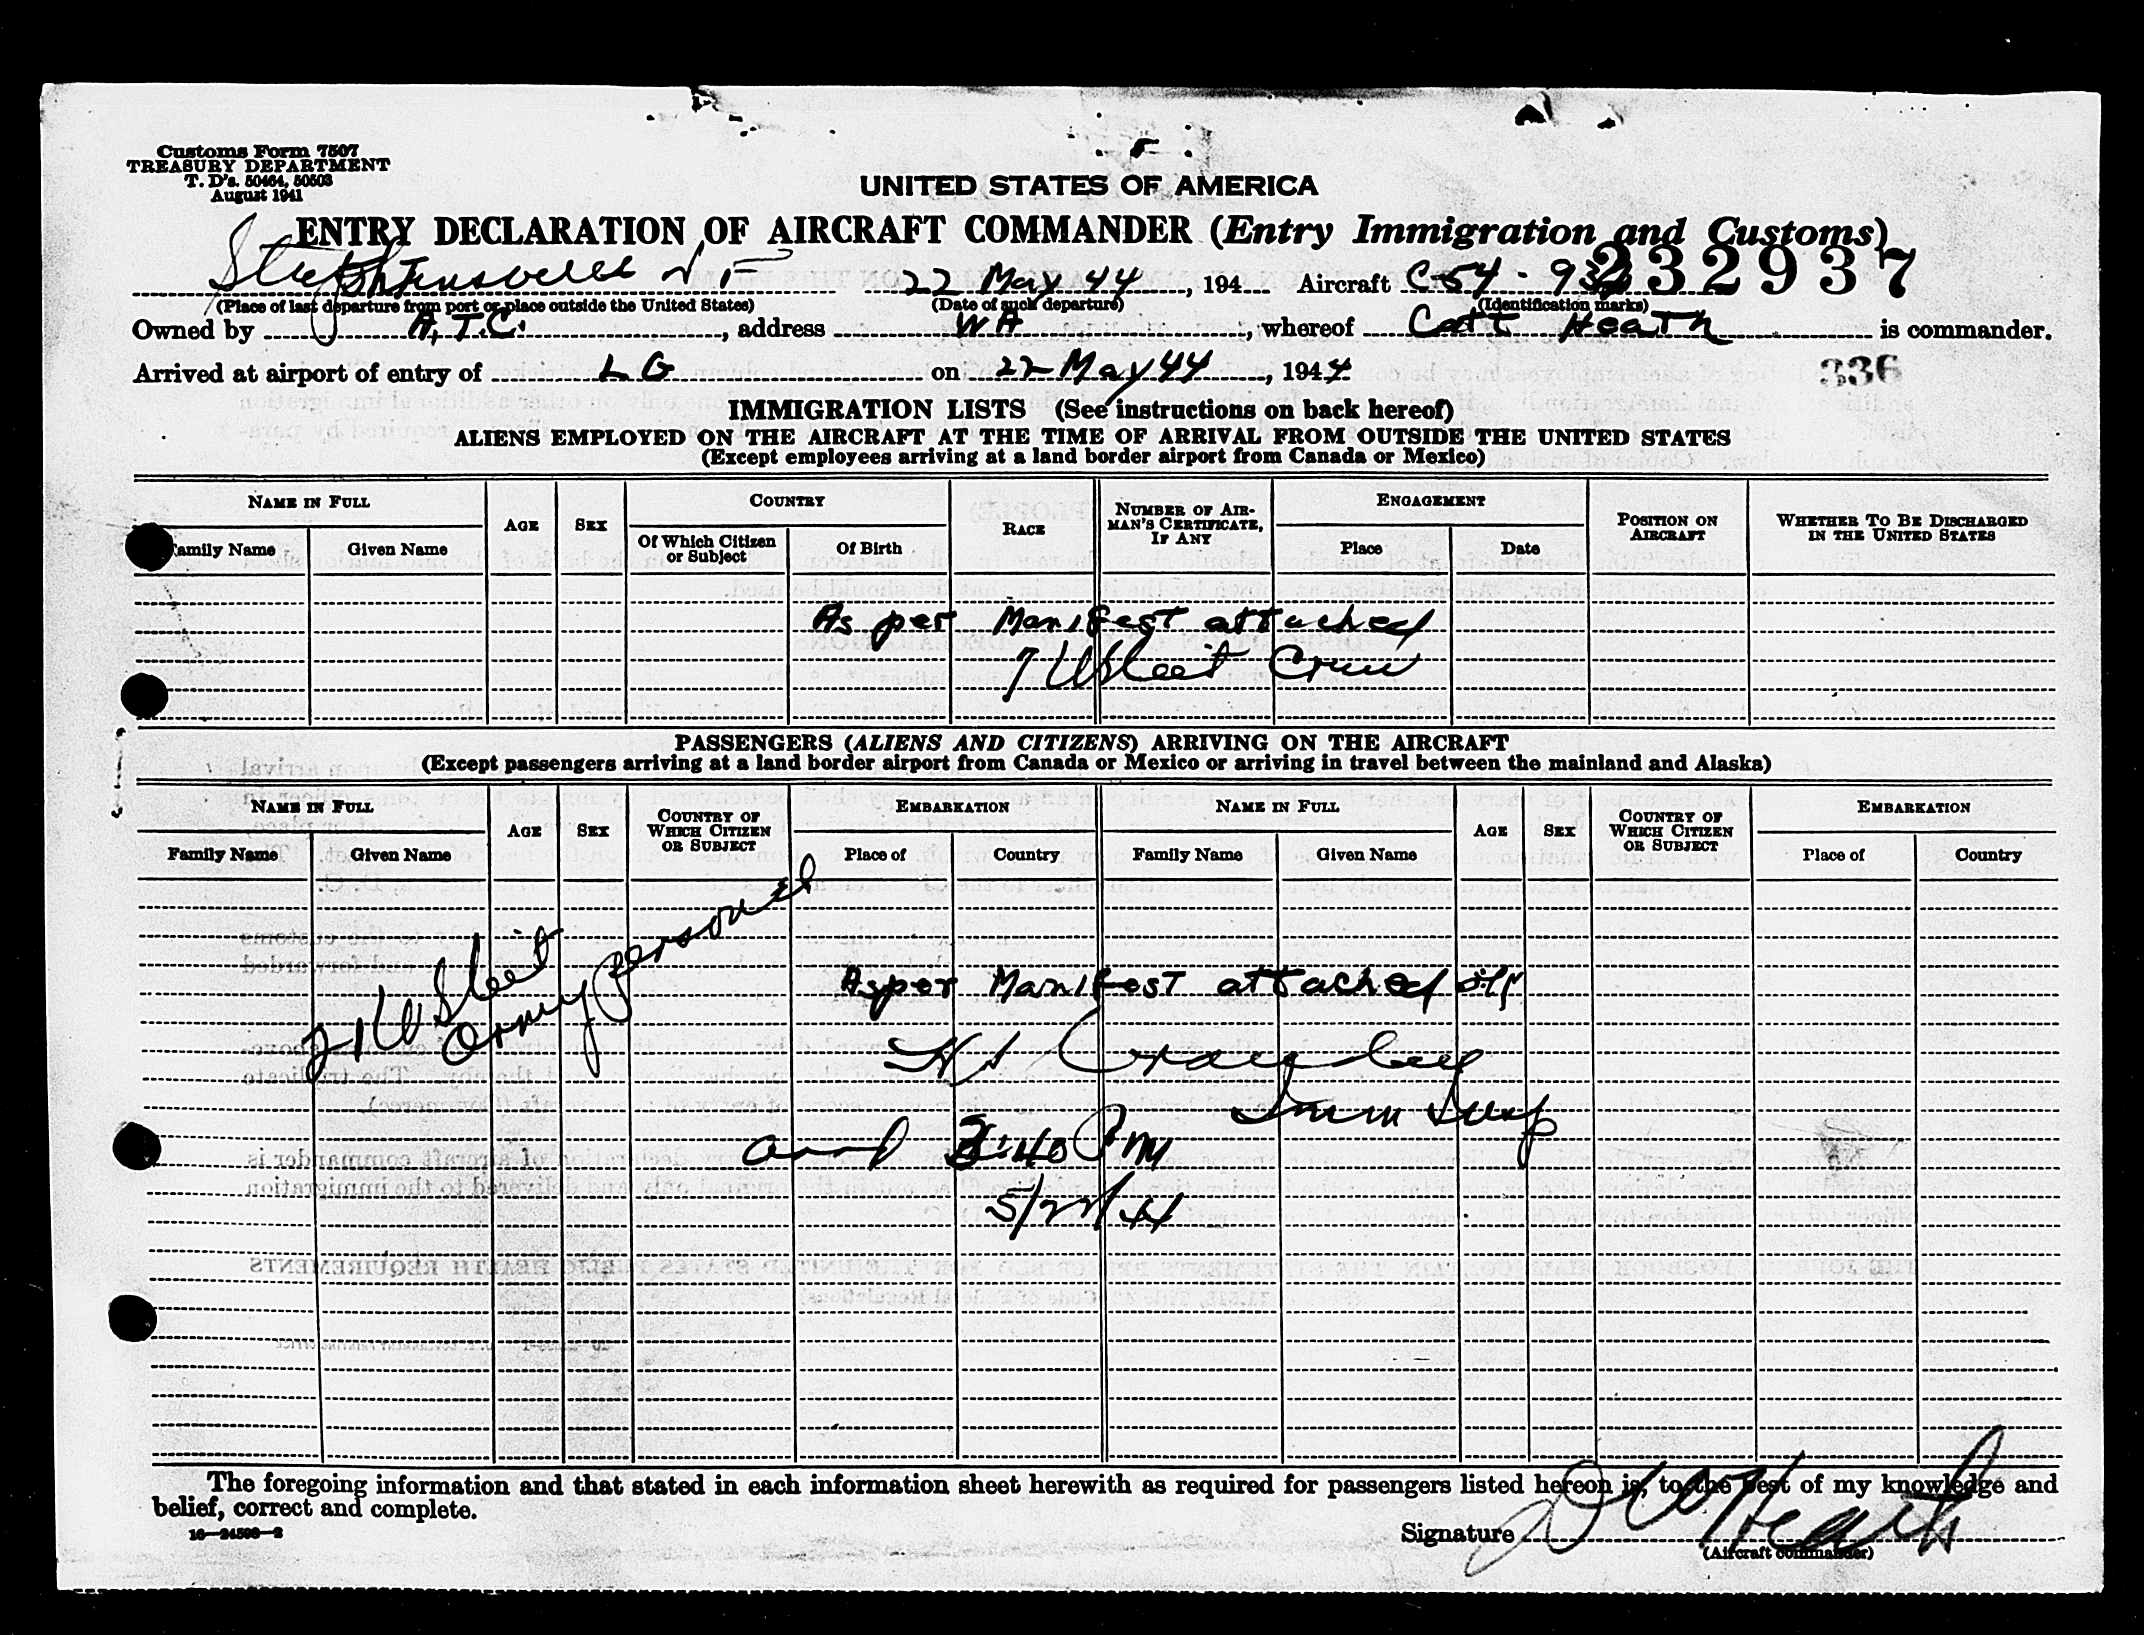 Customs Form 7507
TREASURY DEPARTMENT
T. D's. 50464, 50503
August 1941
UNITED STATES OF AMERICA
ENTRY DECLARATION OF AIRCRAFT COMMANDER (Entry Immigration and Customs)
232937
22 May 44, 194 Aircraft C-54 - 93
(Place of last departure from port or place outside the United States) (Date of such departure) (Identification marks)
Owned by A.T.C., address WA, whereof Heath is commander.
Arrived at airport of entry of LG on 22 May 44, 1944
336
IMMIGRATION LISTS (See instructions on back hereof)
ALIENS EMPLOYED ON THE AIRCRAFT AT THE TIME OF ARRIVAL FROM OUTSIDE THE UNITED STATES
(Except employees arriving at a land border airport from Canada or Mexico)
NAME IN FULL AGE SEX COUNTRY RACE NUMBER OF AIRMAN'S CERTIFICATE, IF ANY ENGAGEMENT POSITION ON AIRCRAFT WHETHER TO BE DISCHARGED IN THE UNITED STATES
Family Name Given Name Of Which Citizen or Subject Of Birth Place Date
As per Manifest attached
7 Crew
PASSENGERS (ALIENS AND CITIZENS) ARRIVING ON THE AIRCRAFT
(Except passengers arriving at a land border airport from Canada or Mexico or arriving in travel between the mainland and Alaska)
NAME IN FULL AGE SEX COUNTRY OF WHICH CITIZEN OR SUBJECT EMBARKATION NAME IN FULL AGE SEX COUNTRY OF WHICH CITIZEN OR SUBJECT EMBARKATION
Family Name Given Name Place of Country Family Name Given Name Place of Country
21
Army personnel
As per Manifest attached
Imm Insp
arrd :40 PM
5/22/44
The foregoing information and that stated in each information sheet herewith as required for passengers listed hereon is, to the best of my knowledge and
belief, correct and complete.
16—24598-2
Signature Heath
(Aircraft commander)